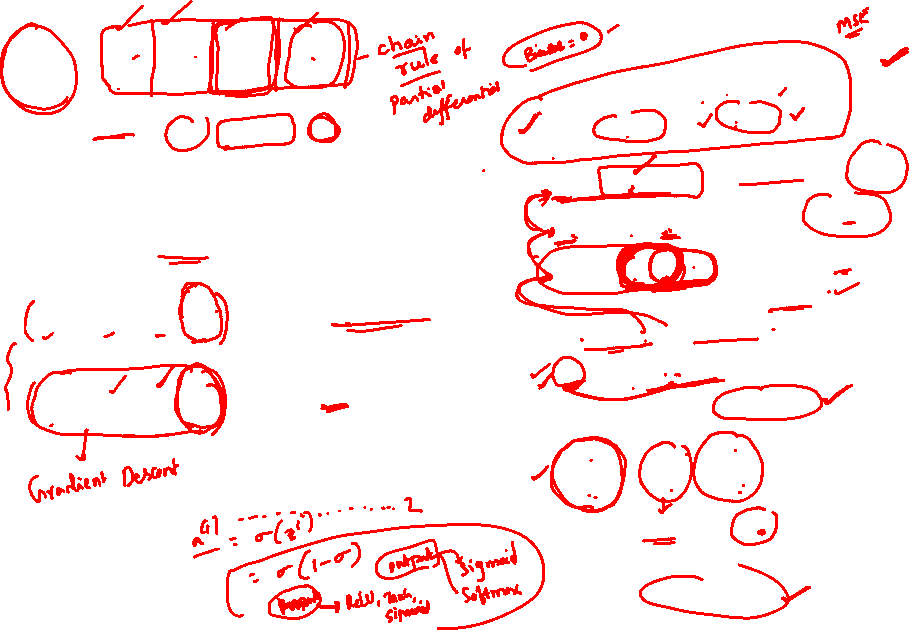 chain
rule of
Partial
differential
Biases = 0
MSE
Gradient Descent
a[i] ............. 2
= σ(z^i)
= σ(1-σ)
output
Sigmoid
Softmax
→ ReLU, Tanh,
sigmoid